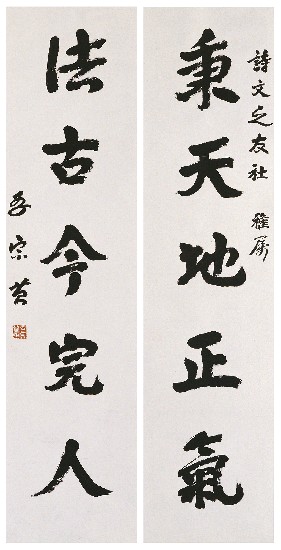 詩文之友社 雅屬
秉天地正氣
法古今完人
李宗黃